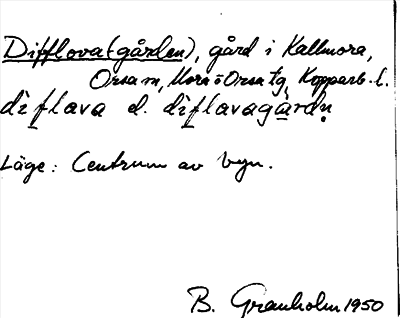 Difflova (gården), gård i Kallmora,
Orsa sn, Mora o Orsa tg, Kopparb. l.
diflava el. diflavagardn
Läge: Centrum av byn.
B. Granholm 1950